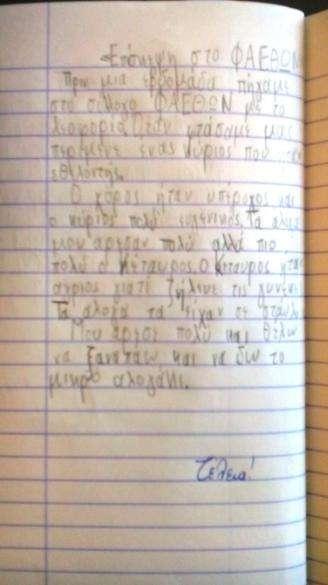 Επίσκεψη στο ΦΑΕΘΩΝ
Πριν μια εβδομάδα, πήγαμε
στο σύλλογο ΦΑΕΘΩΝ με το
λεοφορίο. Όταν φτάσαμε μας
περίμενε ένας κύριος που
εθελοντής.
Ο χώρος ήταν υπέροχος και
ο κύριος πολύ ευγενικός. Τα άλογα
μου άρεσαν πολύ αλλά πιο
πολύ ο Κένταυρος. Ο Κένταυρος ήταν
άγριος γιατί ζήλευε τις
Τα άλογα τα είχαν σε
Μου άρεσε πολύ και θέλω
να ξαναπάω και να δω το
μικρό αλογάκι.
Τέλεια!